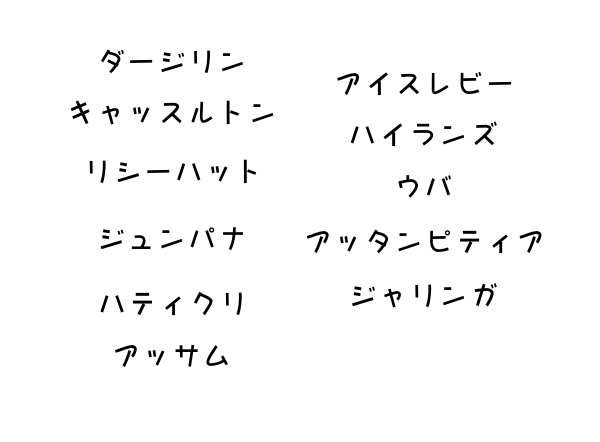 ダージリン
キャッスルトン
リシーハット
ジュンパナ
ハティクリ
アッサム
アイスレビー
ハイランズ
ウバ
アッタンピティア
ジャリンガ